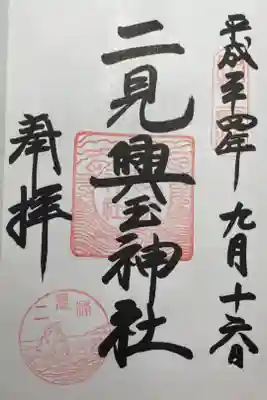 平成二十四年九月十六日
二見興玉神社
奉拝